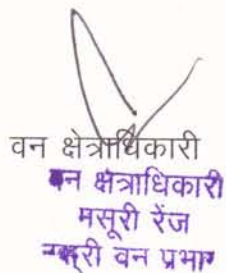 वन क्षेत्राधिकारी
वन क्षेत्राधिकारी
मसूरी रेंज
मसूरी वन प्रभाग